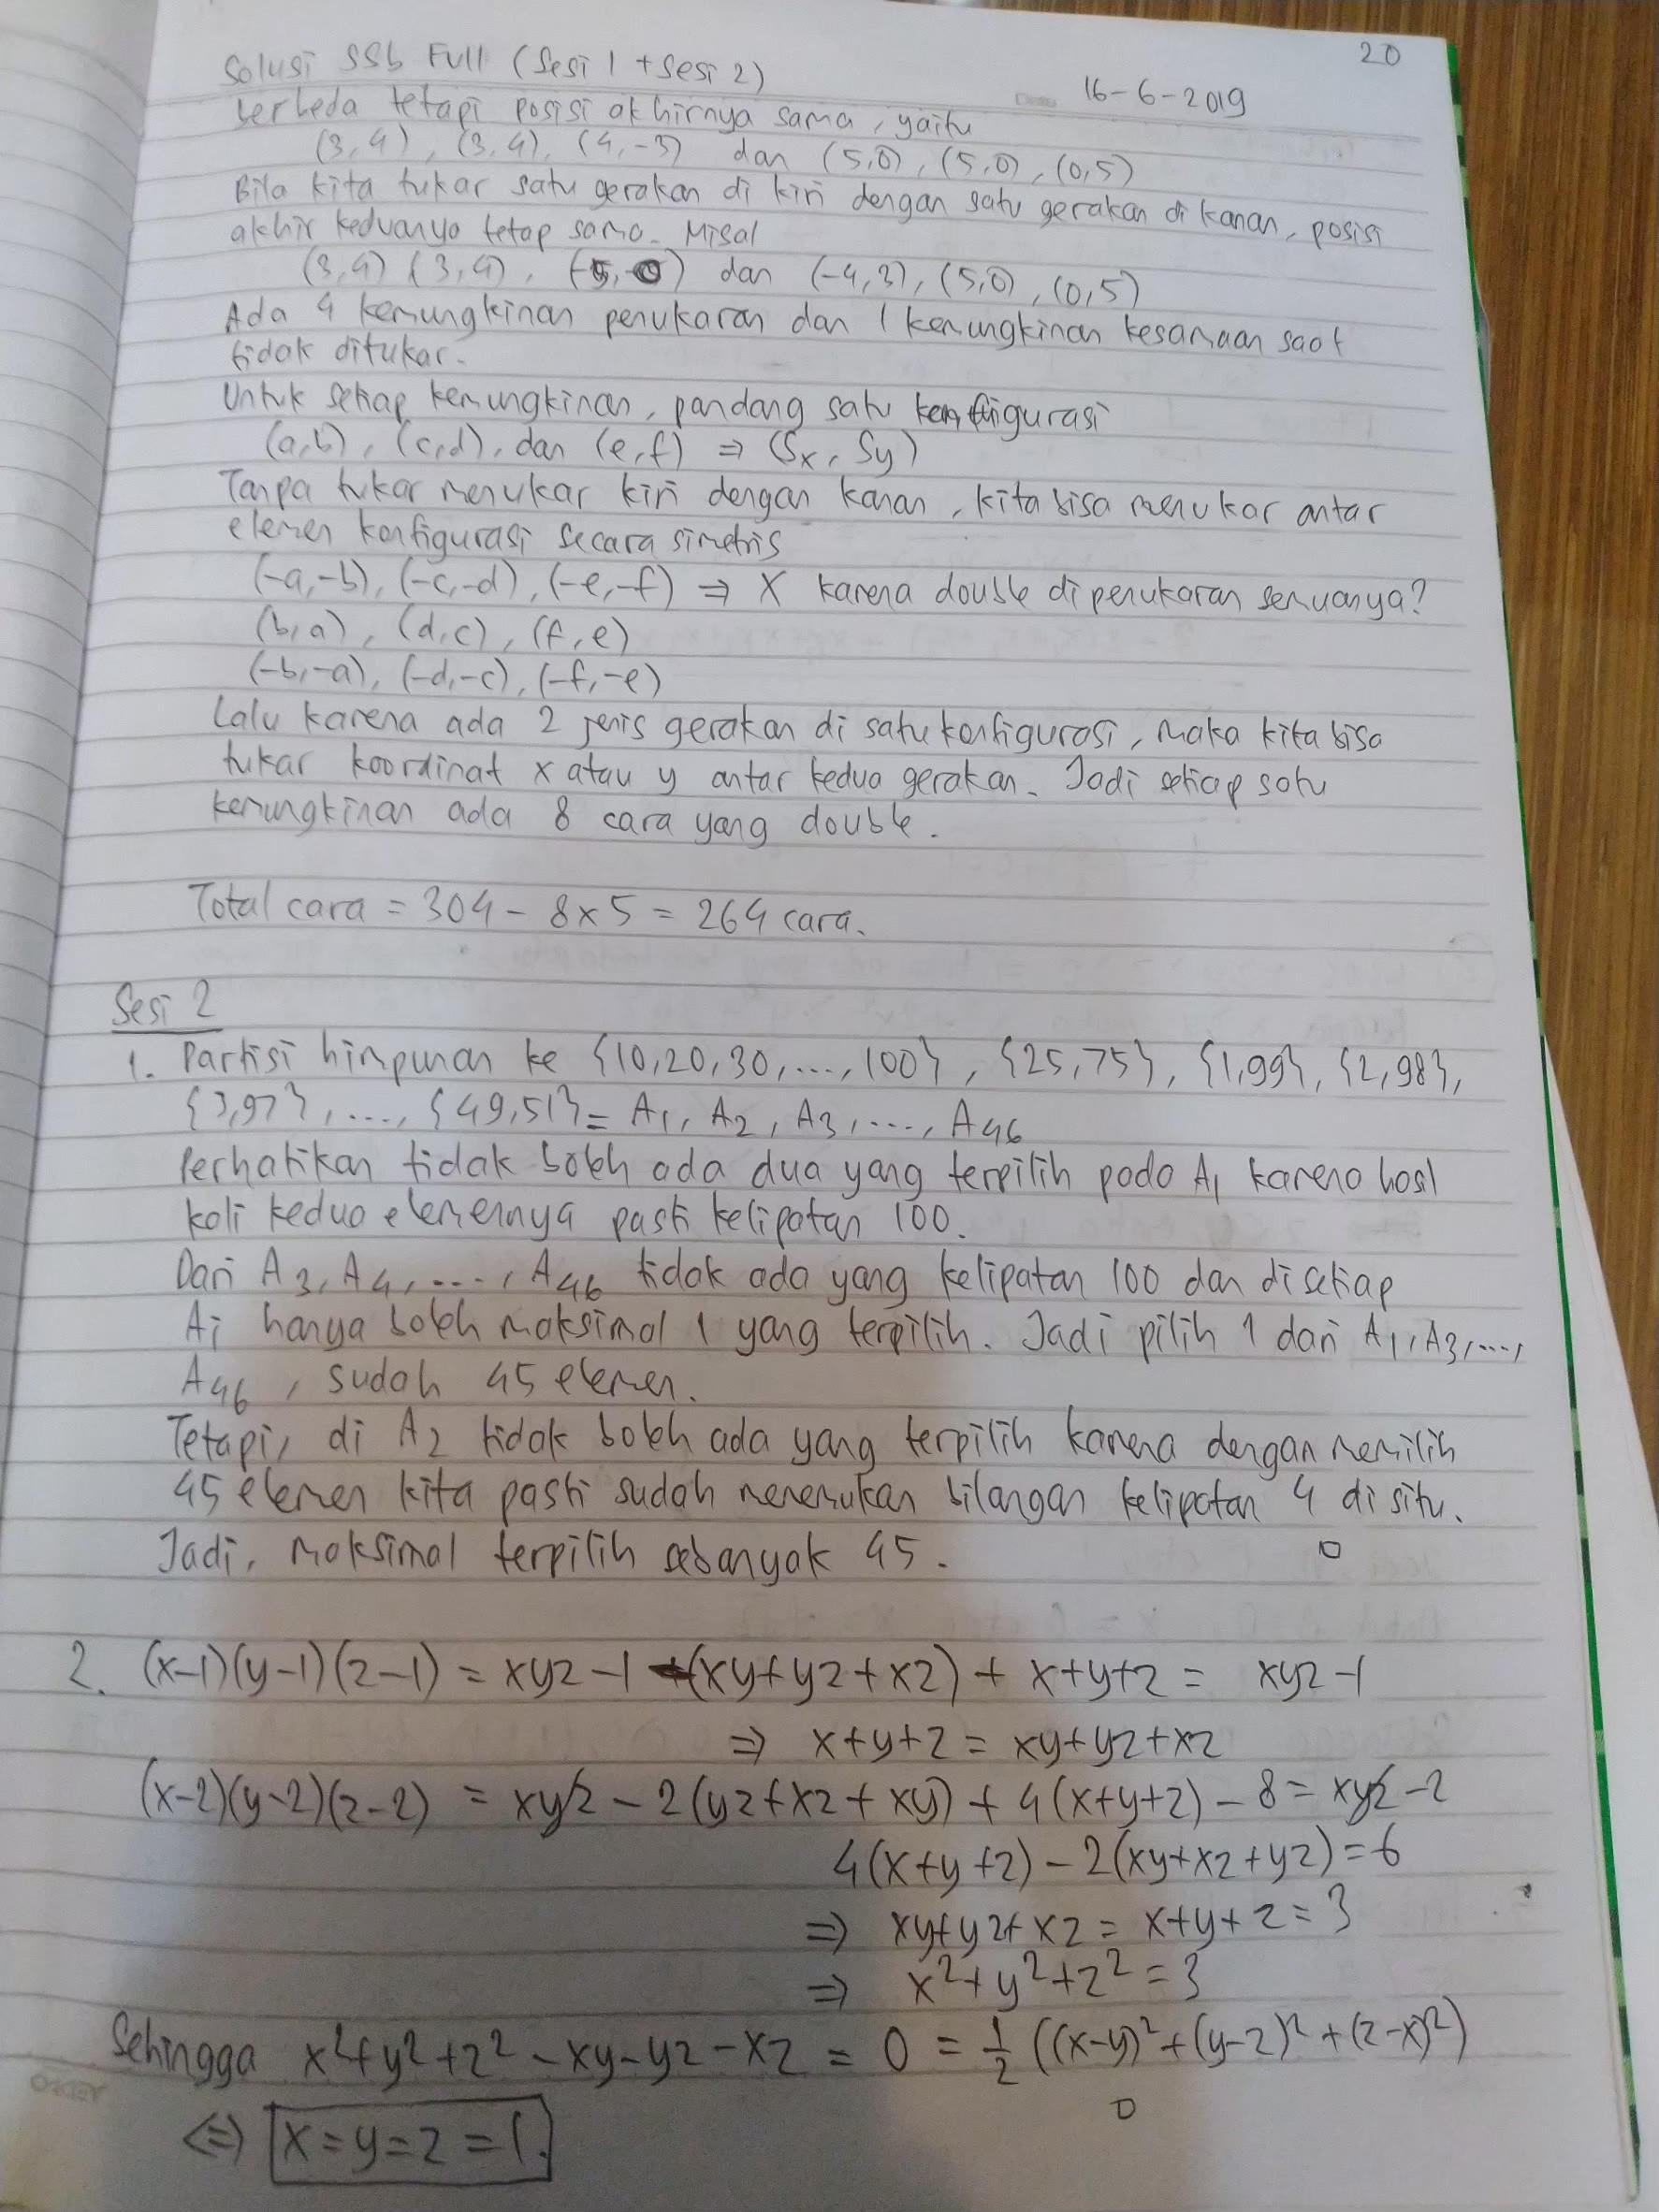 20
Solusi SSb Full (Sesi 1 + Sesi 2)
16-6-2019
berbeda tetapi posisi akhirnya sama, yaitu
(3,4), (3,4), (4,-3) dan (5,0), (5,0), (0,5)
Bila kita tukar satu gerakan di kiri dengan satu gerakan di kanan, posisi
akhir keduanya tetap sama. Misal
(3,4) (3,4), (-5,0) dan (-4,3), (5,0), (0,5)
Ada 4 kemungkinan penukaran dan 1 kemungkinan kesamaan saat
tidak ditukar.
Untuk setiap kemungkinan, pandang satu konfigurasi
(a,b), (c,d), dan (e,f) ⇒ (Sx, Sy)
Tanpa tukar menukar kiri dengan kanan, kita bisa menukar antar
elemen konfigurasi secara simetris
(-a,-b), (-c,-d), (-e,-f) ⇒ X karena double di penukaran semuanya?
(b,a), (d,c), (f,e)
(-b,-a), (-d,-c), (-f,-e)
Lalu karena ada 2 jenis gerakan di satu konfigurasi, maka kita bisa
tukar koordinat x atau y antar kedua gerakan. Jadi setiap satu
kemungkinan ada 8 cara yang double.
Total cara = 304 - 8x5 = 264 cara.
Sesi 2
1. Partisi himpunan ke {10,20,30,...,100}, {25,75}, {1,99}, {2,98},
{3,97}, ..., {49,51} = A1, A2, A3, ..., A46
Perhatikan tidak boleh ada dua yang terpilih pada A1 karena hasil
kali kedua elemennya pasti kelipatan 100.
Dari A3, A4, ...., A46 tidak ada yang kelipatan 100 dan di setiap
Ai hanya boleh maksimal 1 yang terpilih. Jadi pilih 1 dari A1, A3, ...,
A46, sudah 45 elemen.
Tetapi, di A2 tidak boleh ada yang terpilih karena dengan memilih
45 elemen kita pasti sudah menemukan bilangan kelipatan 4 di situ.
Jadi, maksimal terpilih sebanyak 45. □
2. (x-1)(y-1)(z-1) = xyz - 1 -(xy+yz+xz) + x+y+z = xyz-1
⇒ x+y+z = xy+yz+xz
(x-2)(y-2)(z-2) = xyz - 2(yz+xz+xy) + 4(x+y+z) - 8 = xyz-2
4(x+y+z) - 2(xy+xz+yz) = 6
⇒ xy+yz+xz = x+y+z = 3
⇒ x²+y²+z² = 3
Sehingga x²+y²+z² - xy-yz-xz = 0 = 1/2 ((x-y)²+(y-z)²+(z-x)²)
⇔ x=y=z=1. □